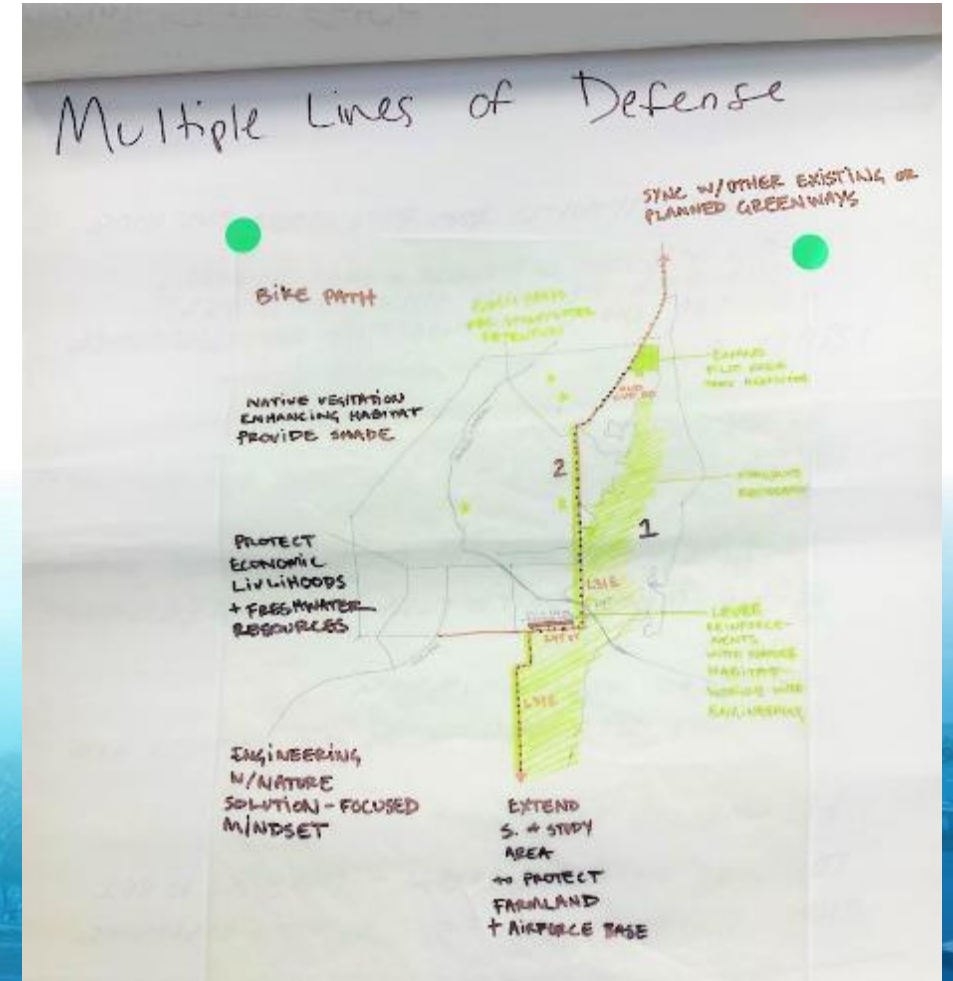 Multiple Lines of Defense
SYNC W/OTHER EXISTING OR
PLANNED GREENWAYS
BIKE PATH
NATIVE VEGITATION
ENHANCING HABITAT
PROVIDE SHADE
2
1
PROTECT
ECONOMIC
LIVLIHOODS
+ FRESHWATER
RESOURCES
L31E
L31E
LEVEE
REINFORCE-
MENTS
WITH NATURE
HABITAT
WORKING WITH
ENGINEERING
ENGINEERING
W/NATURE
SOLUTION-FOCUSED
MINDSET
EXTEND
S. STUDY
AREA
PROTECT
FARMLAND
+ AIRFORCE BASE